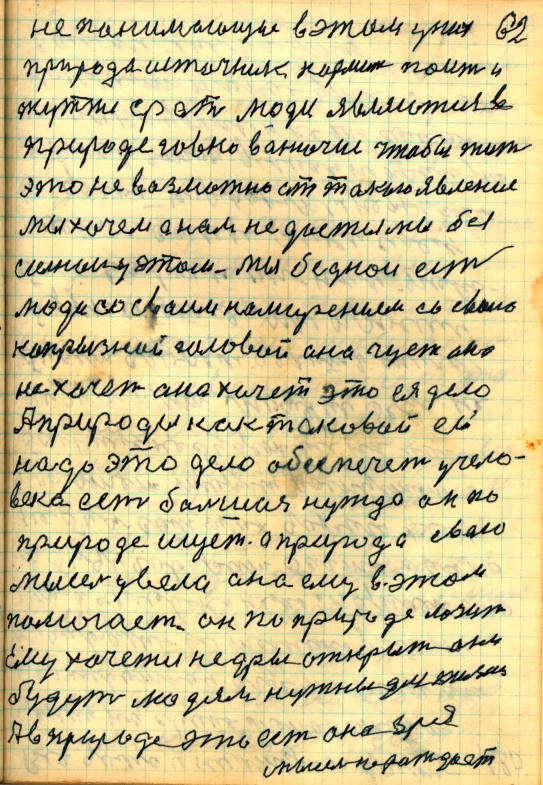 не понимающие в этом у них 62
природа источник кармит поит и
люди являются в
природе говно ваночие чтобы жит
это не возможност такого явление
мы хочем а нам не достими бес
силнои у этом. мы бедной ест
люди со своим намирением со свого
капрызной головой она чует она
не хочет она хочет это ея дело
А природы как таковой ей
надо это дело обеспечет у чело-
века ест балшая нуждо он по
природе ищет. а природа сваю
мысл увела она ему в этом
помогает. он по природе лазит
ему хочется недры открыт они
будут людям нужны для жизни
А в природе это ест она зря
мысл не раждает